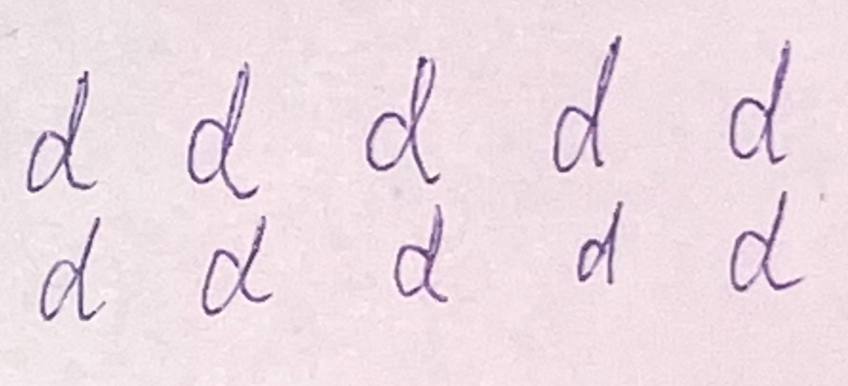 d d d d d
d d d d d